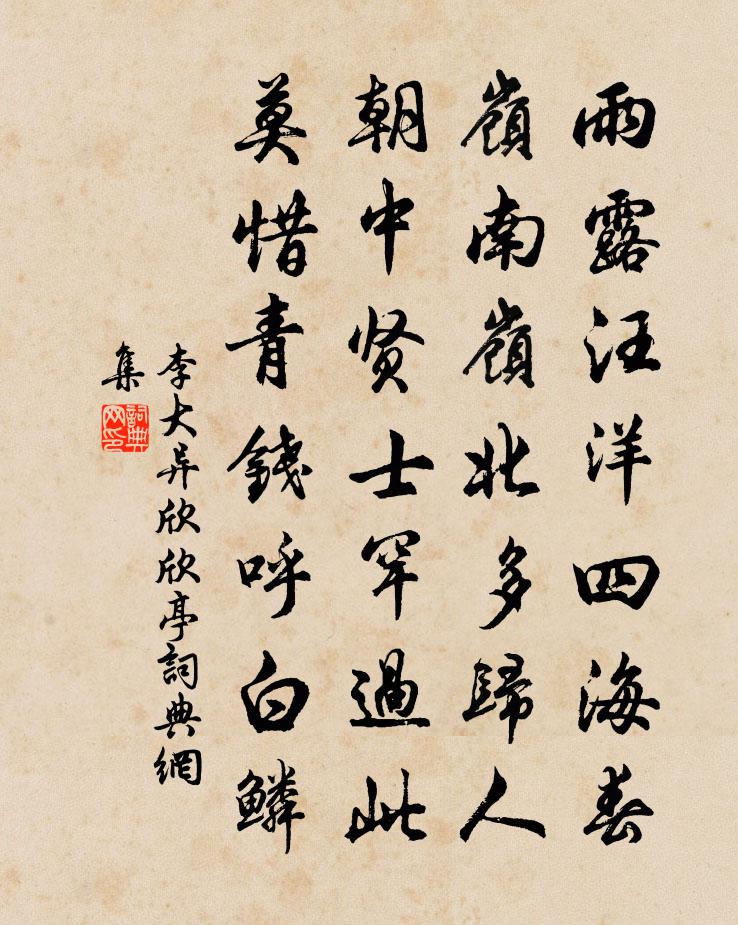 雨露汪洋四海春
嶺南嶺北多歸人
朝中贤士罕過此
莫惜青錢呼白鱗
李大异欣欣亭詞典網
集
詞典
网印